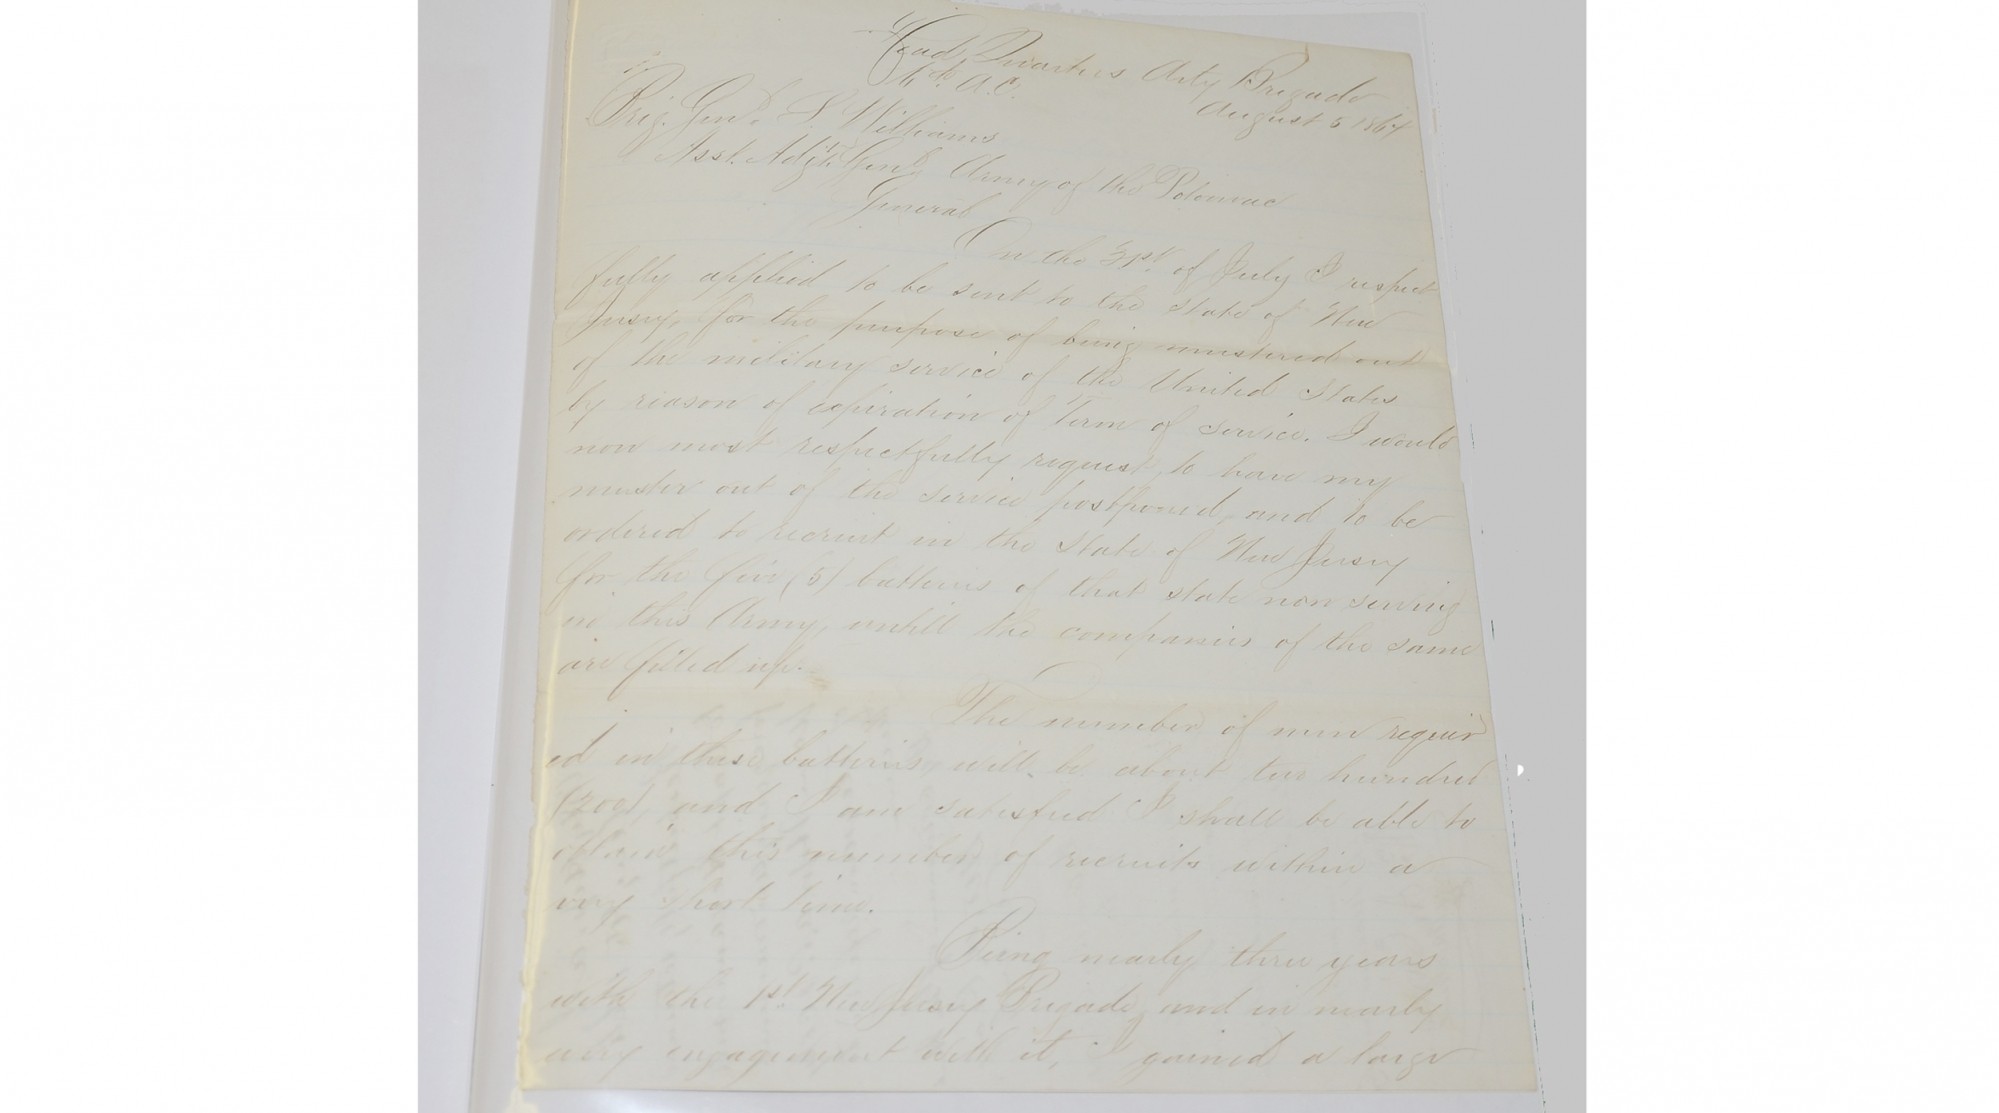 Head Quarters Arty Brigade
A.C.
August 5 1864
Brig. Genl. S. Williams
Asst. Adjt. Genl. Army of the Potomac
General
On the 31st. of July I respect
fully applied to be sent to the State of New
Jersey, for the purpose of being mustered out
of the military service of the United States
by reason of expiration of Term of service. I would
now most respectfully request to have my
muster out of the service postponed, and to be
ordered to recruit in the State of New Jersey
for the five (5) batteries of that state now serving
in this Army, untill the companies of the same
are filled up.
The number of men requir
ed in these batteries will be about two hundred
(200), and I am satisfied I shall be able to
obtain this number of recruits within a
very short time.
Being nearly three years
with the 1st. New Jersey Brigade, and in nearly
every engagement with it, I gained a large